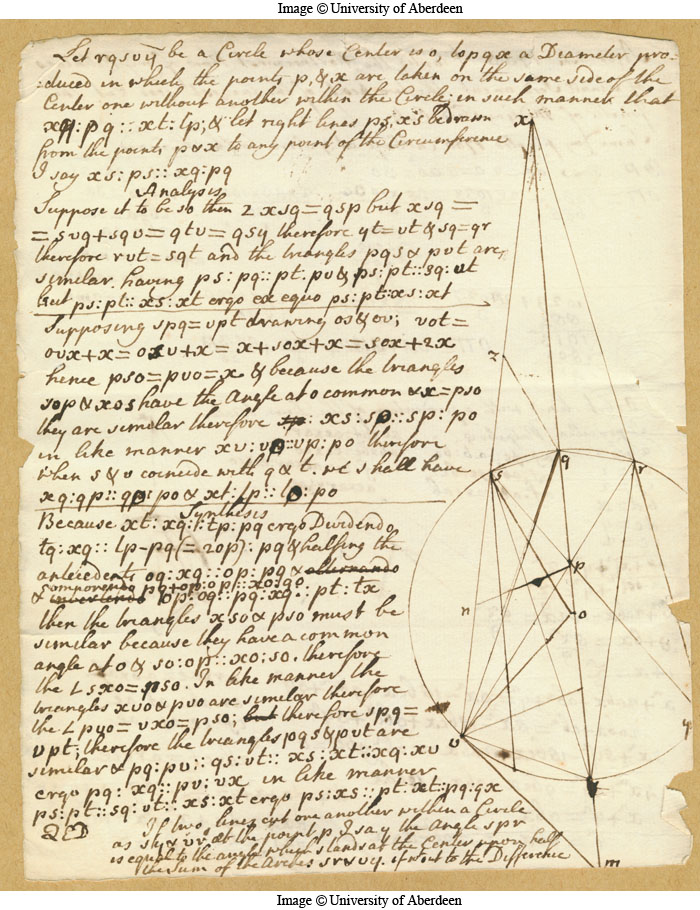 Image © University of Aberdeen
Let rqsvty be a Circle whose Center is o, topqx a Diameter pro-
:duced in which the points p, & x are taken on the same side of the
Center one without another within the Circle; in such manner that
xq: pq :: xt: tp; & let right lines ps, xs be drawn
from the points p & x to any point of the Circumference
I say xs: ps:: xq: pq
Analysis
Suppose it to be so then 2 xsq = qsp but xsq =
= svq + sqv = qtv = qsy therefore yt = vt & sq = qr
therefore rvt = sqt and the triangles pqs & pvt are
similar. having ps: pq:: pt: pv & ps: pt:: sq: vt
but ps: pt:: xs: xt ergo ex equo ps: pt: xs: xt
Supposing spq = vpt drawing os & ov; vot =
ovx + x = osv + x = x + sox + x = sox + 2x
hence pso = pvo = x & because the triangles
sop & xos have the Angle at o common & x = pso
they are similar therefore xs: so:: sp: po
in like manner xv: vo:: vp: po therefore
when s & v coincide with q & t. we shall have
xq: qp:: qo: po & xt: tp:: to: po
Synthesis
Because xt: xq:: tp: pq ergo Dividendo
tq: xq:: tp-pq (= 2op): pq & halfing the
antecedents oq: xq:: op: pq & alternando
componendo pq+op: op:: xo: qo
& invertendo op: oq:: pq: xq:: pt: tx
then the triangles xso & pso must be
similar because they have a common
angle at o & so: op:: xo: so. therefore
the L sxo = pso. In like manner the
triangles xvo & pvo are similar therefore
the L pvo = vxo = pso; but therefore spq =
vpt; therefore the triangles pqs & pvt are
similar & pq: pv:: qs: vt:: xs: xt:: xq: xv
ergo pq: xq:: pv: vx in like manner
ps: pt:: sq: vt:: xs: xt ergo ps: xs:: pt: xt:: pq: qx
QED
If two lines cut one another within a Circle
as sy & vr at the point p I say the Angle spr
is equal to the angle which stands at the Center upon half
the Sum of the Arches sr & vy. if without to the Difference
x
z
s
q
r
p
n
o
v
y
m
Image © University of Aberdeen